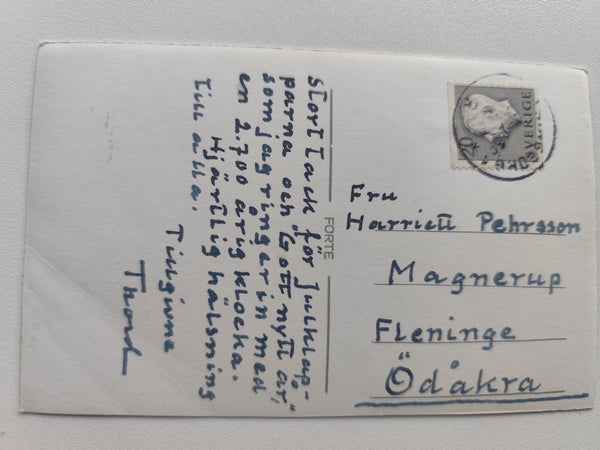 Stort tack för Julklap-
parna och "Gott nytt år,"
som jag ringer in med
en 2.700 årig klocka.
Hjärtlig hälsning
till alla.
Tillgivne
Thord
FORTE
SVERIGE
Fru
Harriett Pehrsson
Magnerup
Fleninge
Ödåkra